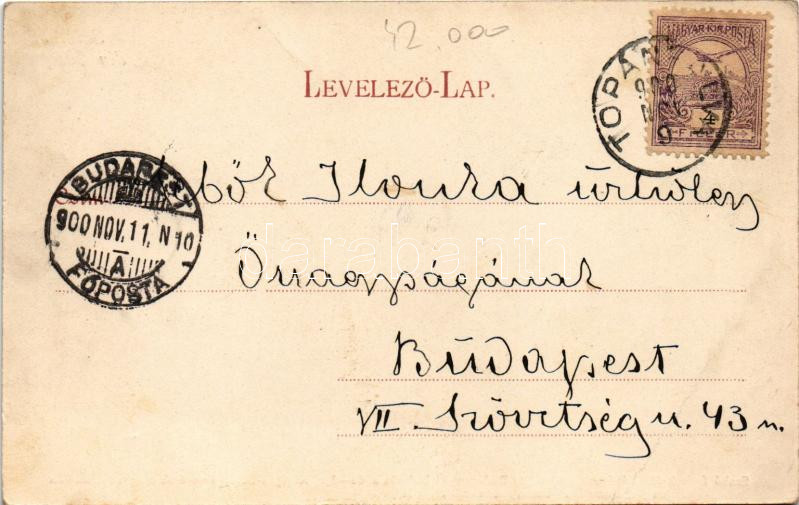 42.000
LEVELEZŐ-LAP.
MAGYAR KIR. POSTA
TOPÁN
900 NOV. 9
BUDAPEST
900 NOV. 11. N 10
A
FŐPOSTA
Ilonka úrhölgy
Őnagyságának
Budapest
VII Szövetség u. 43 n.
darabanth